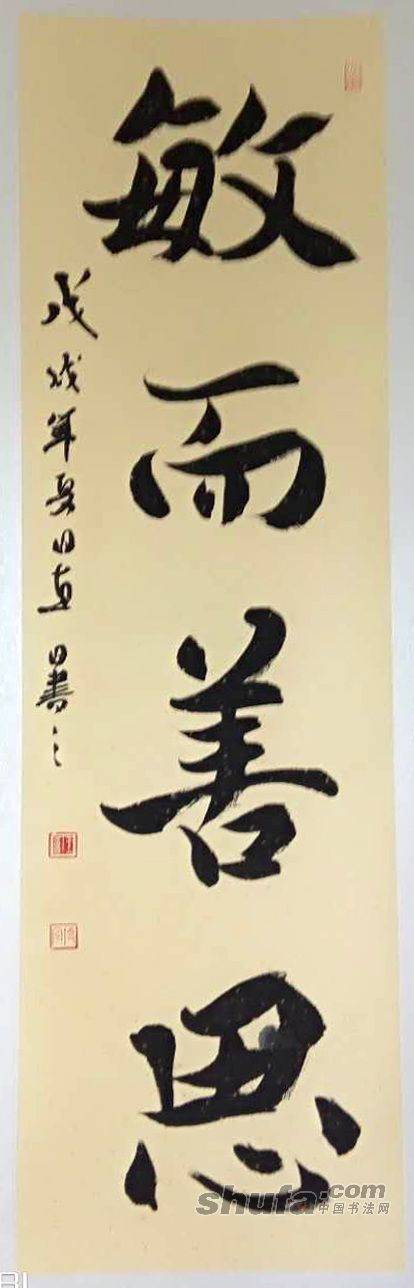 敏而善思
戊戌年夏日
日書之
shufa.com
中国书法网